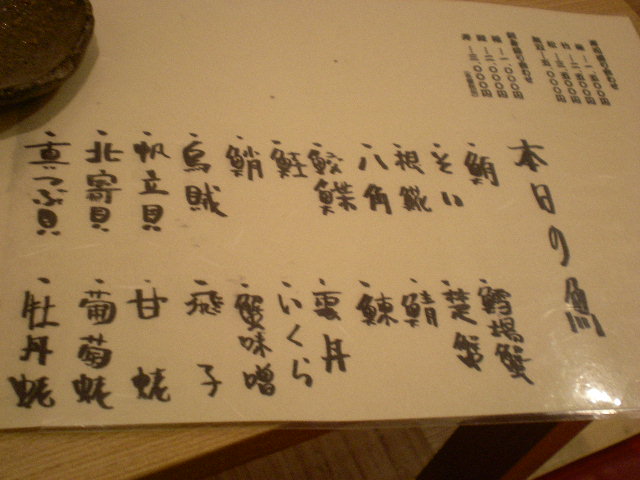 本日の魚
・鮪
・そい
・根𩸽
・八角
・鮫鰈
・鮭
・鮹
・烏賊
・帆立貝
・北寄貝
・真つぶ貝
・鱈場蟹
・楚蟹
・鯖
・鰊
・雲丹
・いくら
・蟹味噌
・飛子
・甘蛯
・葡萄蛯
・牡丹蛯